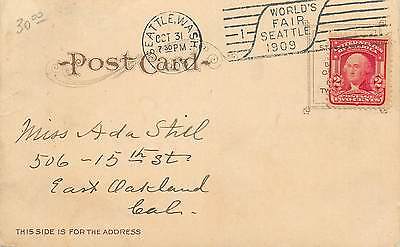 30.00
SEATTLE, WASH.
OCT 31
7:30 PM
1
WORLD'S
FAIR
SEATTLE
1909
Post Card
2 2
TWO CENTS
Miss Ada Still
506 - 15th St
East Oakland
Cal.
THIS SIDE IS FOR THE ADDRESS